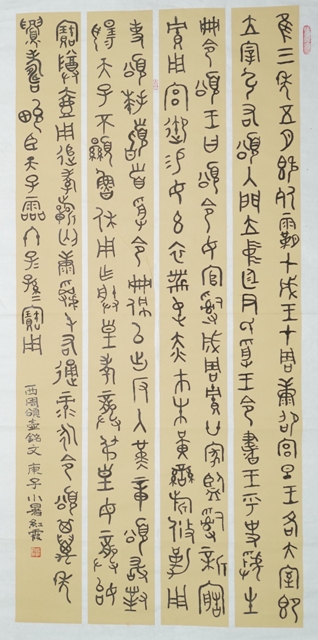 隹三年五月既死霸甲戌王才周康卲宮旦王各大室即
立宰弘右頌入門立中廷尹氏受王令書王乎史虢生
冊令頌王曰頌令女官𤔲成周貯廿家監𤔲新寤
貯用宮御易女玄衣黹屯赤巿朱黃鑾旂攸勒用
事頌拜稽首受令冊佩以出反入堇章頌敢對
揚天子不顯魯休用乍朕皇考龔叔皇母龔姒
寶尊壺用追孝祈匄康龢屯右通彔永令頌其萬年
眉壽畯臣天子霝冬子=孫=寶用
西周頌壺銘文 庚子小暑紅霞